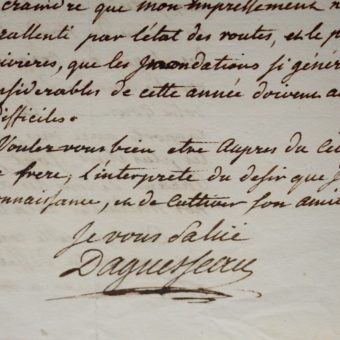 craindre que mon empressement n
rallenti par l'état des routes, et le p
rivieres, que les Inondations si génér
nsiderables de cette année doivent a
difficiles.
Voulez vous bien etre aupres du Ci
e frere, l'interprete du desir que j
onnaissance, et de cultiver son amie
Je vous Salue
Daguesseau